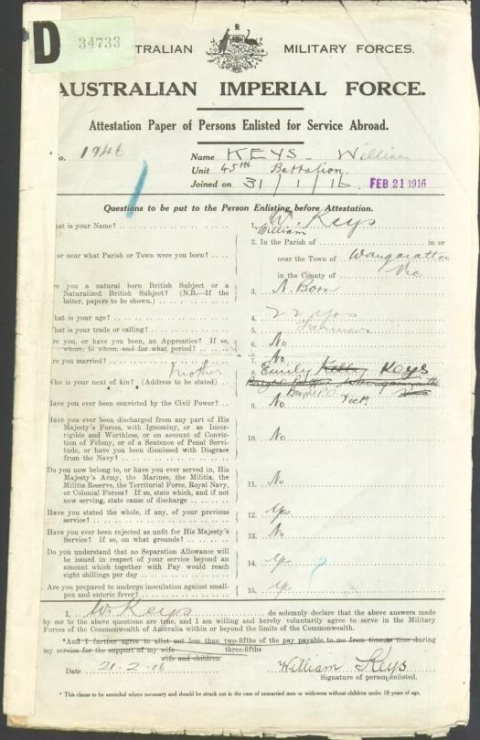 D 34733
AUSTRALIAN MILITARY FORCES.
AUSTRALIAN IMPERIAL FORCE.
Attestation Paper of Persons Enlisted for Service Abroad.
No. 1946 Name KEYS William
Unit 45TH Battalion
Joined on 31/1/16 FEB 21 1916
Questions to be put to the Person Enlisting before Attestation.
hat is your Name? 1. W. Keys
William
2. In the Parish of in or
or near what Parish or Town were you born? near the Town of Wangaratta
in the County of Vic
re you a natural born British Subject or a
Naturalized British Subject? (N.B.—If the
latter, papers to be shown). 3. N. Born
hat is your age? 4. 22 yrs
hat is your trade or calling? 5.
re you, or have you been, an Apprentice? If so,
where, to whom, and for what period? 6. No
re you married? 7. No
Mother
Who is your next of kin? (Address to be stated) 8. Emily Kelly Keys
Vict.
Have you ever been convicted by the Civil Power? 9. No
Have you ever been discharged from any part of His
Majesty's Forces, with Ignominy, or as Incor-
rigible and Worthless, or on account of Convic-
tion of Felony, or of a Sentence of Penal Servi-
tude, or have you been dismissed with Disgrace
from the Navy? 10. No
Do you now belong to, or have you ever served in, His
Majesty's Army, the Marines, the Militia, the
Militia Reserve, the Territorial Force, Royal Navy,
or Colonial Forces? If so, state which, and if not
now serving, state cause of discharge 11. No
Have you stated the whole, if any, of your previous
service? 12. Yes
Have you ever been rejected as unfit for His Majesty's
Service? If so, on what grounds? 13. No
Do you understand that no Separation Allowance will
be issued in respect of your service beyond an
amount which together with Pay would reach
eight shillings per day 14. Yes
Are you prepared to undergo inoculation against small-
pox and enteric fever? 15. Yes
I, W. Keys do solemnly declare that the above answers made
by me to the above questions are true, and I am willing and hereby voluntarily agree to serve in the Military
Forces of the Commonwealth of Australia within or beyond the limits of the Commonwealth.
*And I further agree to allot not less than two-fifths of the pay payable to me from time to time during
three-fifths
my service for the support of my wife
wife and children
Date 21-2-16 William Keys
Signature of person enlisted.
* This clause to be amended where necessary and should be struck out in the case of unmarried men or widowers without children under 18 years of age.